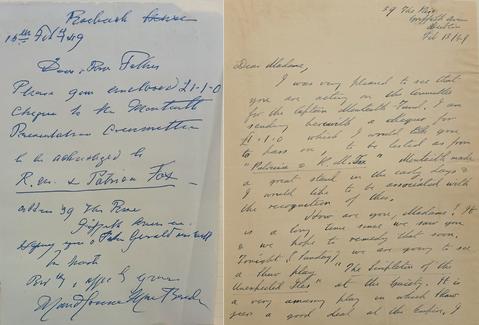 Roebuck House
15th Feb 49
Dear Rev Father
Please give enclosed £1-1-0
Cheque to the Monteith
Presentation Committee
to be acknowledged to
R. M. & Patricia Fox
address 39 The Rise
Griffith Avenue
Hoping you & Father Gerald are well
29 The Rise
Griffith Ave
Feb 13/49
Dear Madame,
I was very pleased to see that
you are acting on the Committee
for the Captain Monteith Fund. I am
sending herewith a cheque for
£1.1.0 which I would like you
to pass on, to be listed as from
"Patricia & R. M. Fox" Monteith made
a great stand in the early days &
I would like to be associated with
the recognition of this.
How are you, Madame? It
is a long time since we saw you
& we hope to remedy that soon.
Tonight (Sunday) we are going to see
a Shaw play "The Simpleton of the
Unexpected Isles" at the Gaiety. It is
a very amusing play in which Shaw
pokes a good deal at the Empire, I